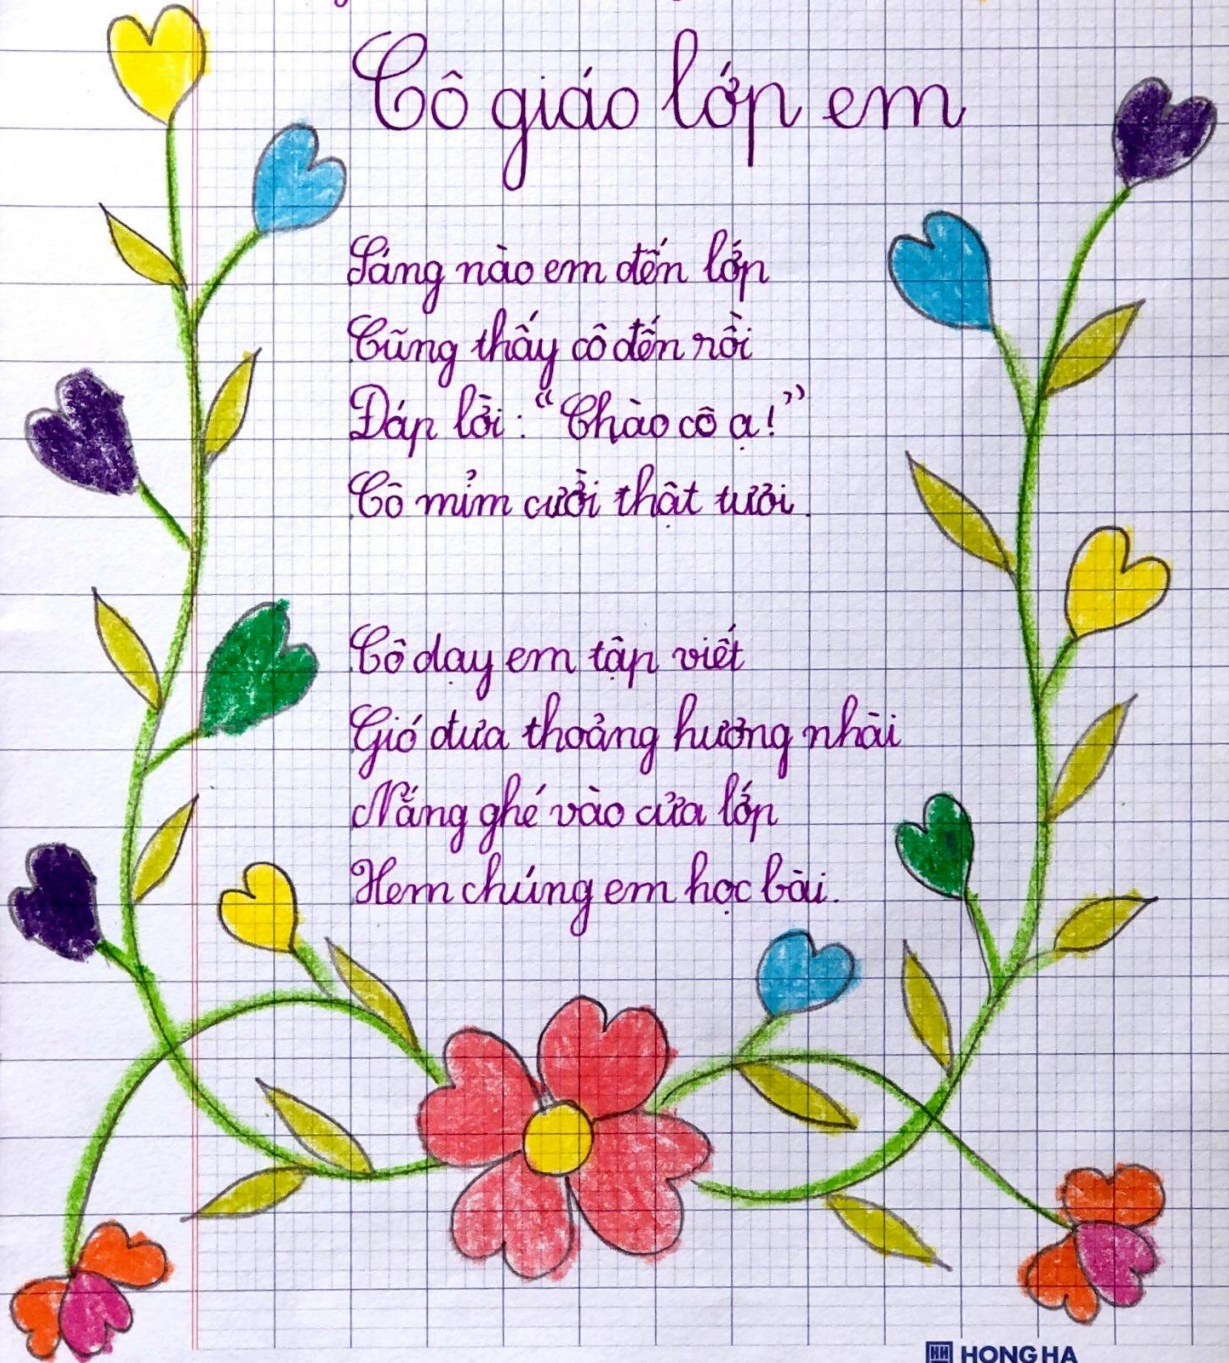 Cô giáo lớp em
Sáng nào em đến lớp
Cũng thấy cô đến rồi
Đáp lời: “Chào cô ạ!”
Cô mỉm cười thật tươi.
Cô dạy em tập viết
Gió đưa thoảng hương nhài
Nắng ghé vào cửa lớp
Xem chúng em học bài.
HONG HA